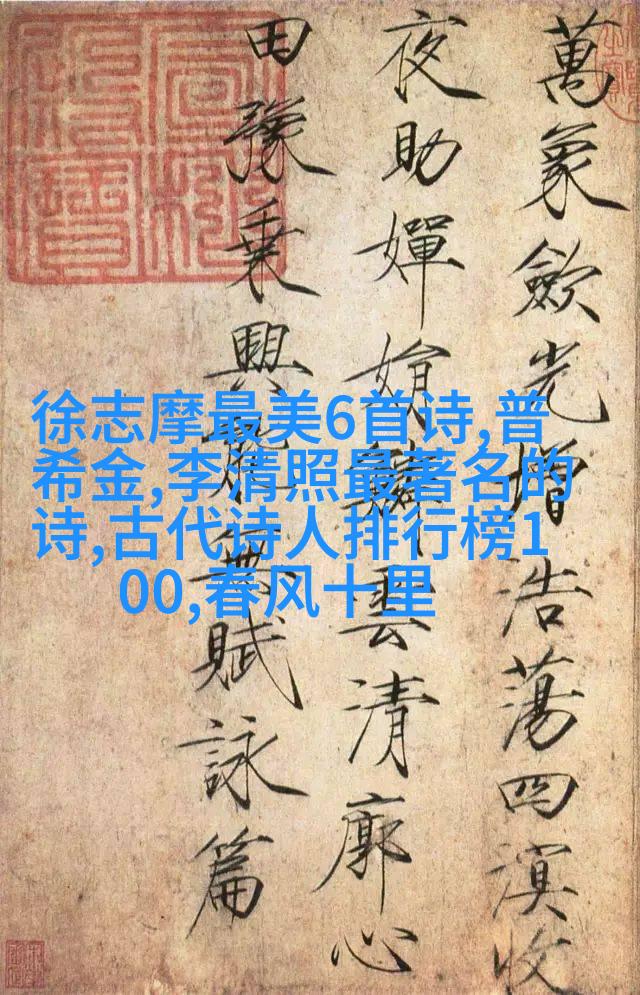 萬象歛光增浩蕩四溟收
夜助嬋娟鱗雲清廓心
田豫乘興能無賦詠篇
徐志摩最美6首诗,普
希金,李清照最著名的
诗,古代诗人排行榜1
00,春风十里